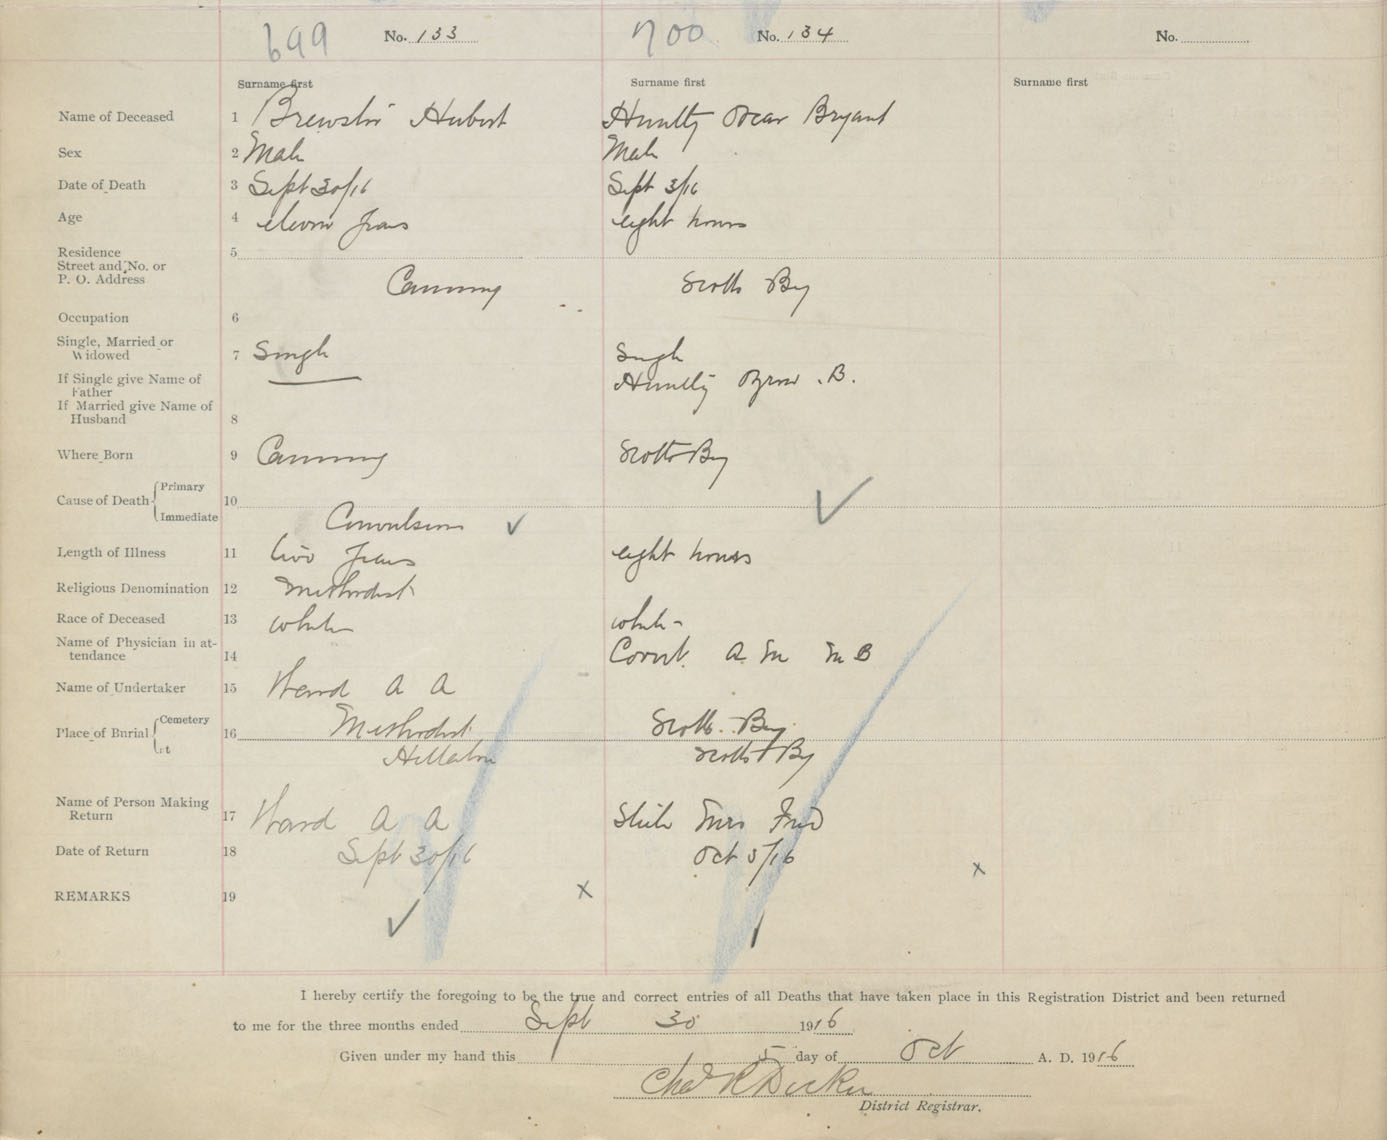 699 No. 133 700 No. 134 No.
Surname first Surname first Surname first
Name of Deceased 1 Brewster Hubert Huntly Oscar Bryant
Sex 2 Male Male
Date of Death 3 Sept 30/16 Sept 3/16
Age 4 eleven years eight hours
Residence 5
Street and No. or
P. O. Address Canning Scotts Bay
Occupation 6
Single, Married or
Widowed 7 Single Single
If Single give Name of
Father Huntly B.
If Married give Name of
Husband 8
Where Born 9 Canning Scotts Bay
Cause of Death Primary
10
Immediate Convulsions ✓ ✓
Length of Illness 11 two years eight hours
Religious Denomination 12 Methodist
Race of Deceased 13 white white
Name of Physician in at-
tendance 14 A M M B
Name of Undertaker 15 Ward A A
Place of Burial Cemetery 16 Methodist Scotts Bay
Lot Hillaton Scotts Bay
Name of Person Making
Return 17 Ward A A Mrs Fred
Date of Return 18 Sept 30/16 Oct 5/16
REMARKS 19 x x
✓
I hereby certify the foregoing to be the true and correct entries of all Deaths that have taken place in this Registration District and been returned
to me for the three months ended Sept 30 1916
Given under my hand this 5 day of Oct A. D. 1916
Chas R Decker
District Registrar.